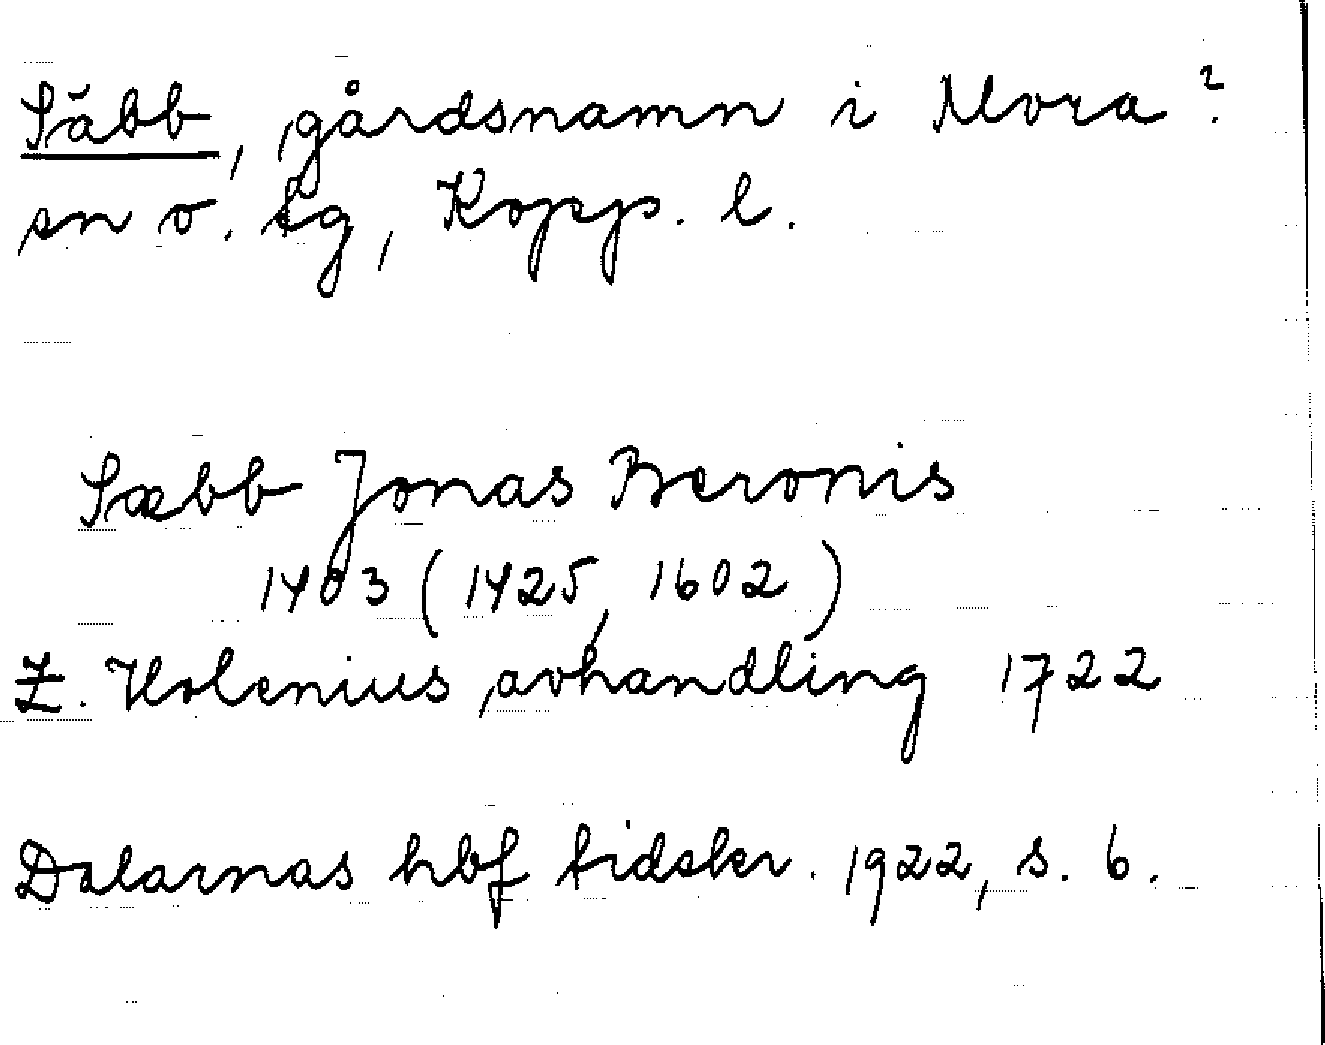 Säbb, gårdsnamn i Mora?
sn o. tg, Kopp. l.
Sæbb Jonas Beronis
1403 (1425, 1602)
Z. Holenius avhandling 1722
Dalarnas hbf tidskr. 1922, s. 6.